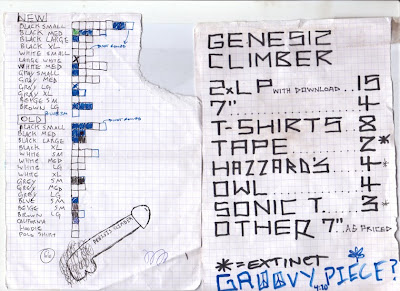 NEW
BLACK SMALL
BLACK MED
BLACK LARGE
BLACK XL
WHITE SMALL
LARGE WHITE
WHITE MED
GRAY SMALL
GRAY MED
GRAY LG
GRAY XL
BEIGE SM
BROWN LG
OLD
BLACK SMALL
BLACK MED
BLACK LARGE
BLACK XL
WHITE SM
WHITE MED
WHITE LG
WHITE XL
GREY SM
GREY MED
GREY LG
BLUE SM
BEIGE SM
BROWN LG
CALIFORNIA
HOODIE
POLO SHIRT
GENESIZ
CLIMBER
2xLP WITH DOWNLOAD... 15
7" ... 4
T-SHIRTS ... 8
TAPE ... 2*
HAZZARD'S ... 4
OWL ... 4
SONIC T. ... 3*
OTHER 7" ... AS PRICED
*=EXTINCT
GROOVY PIECE?
4:20